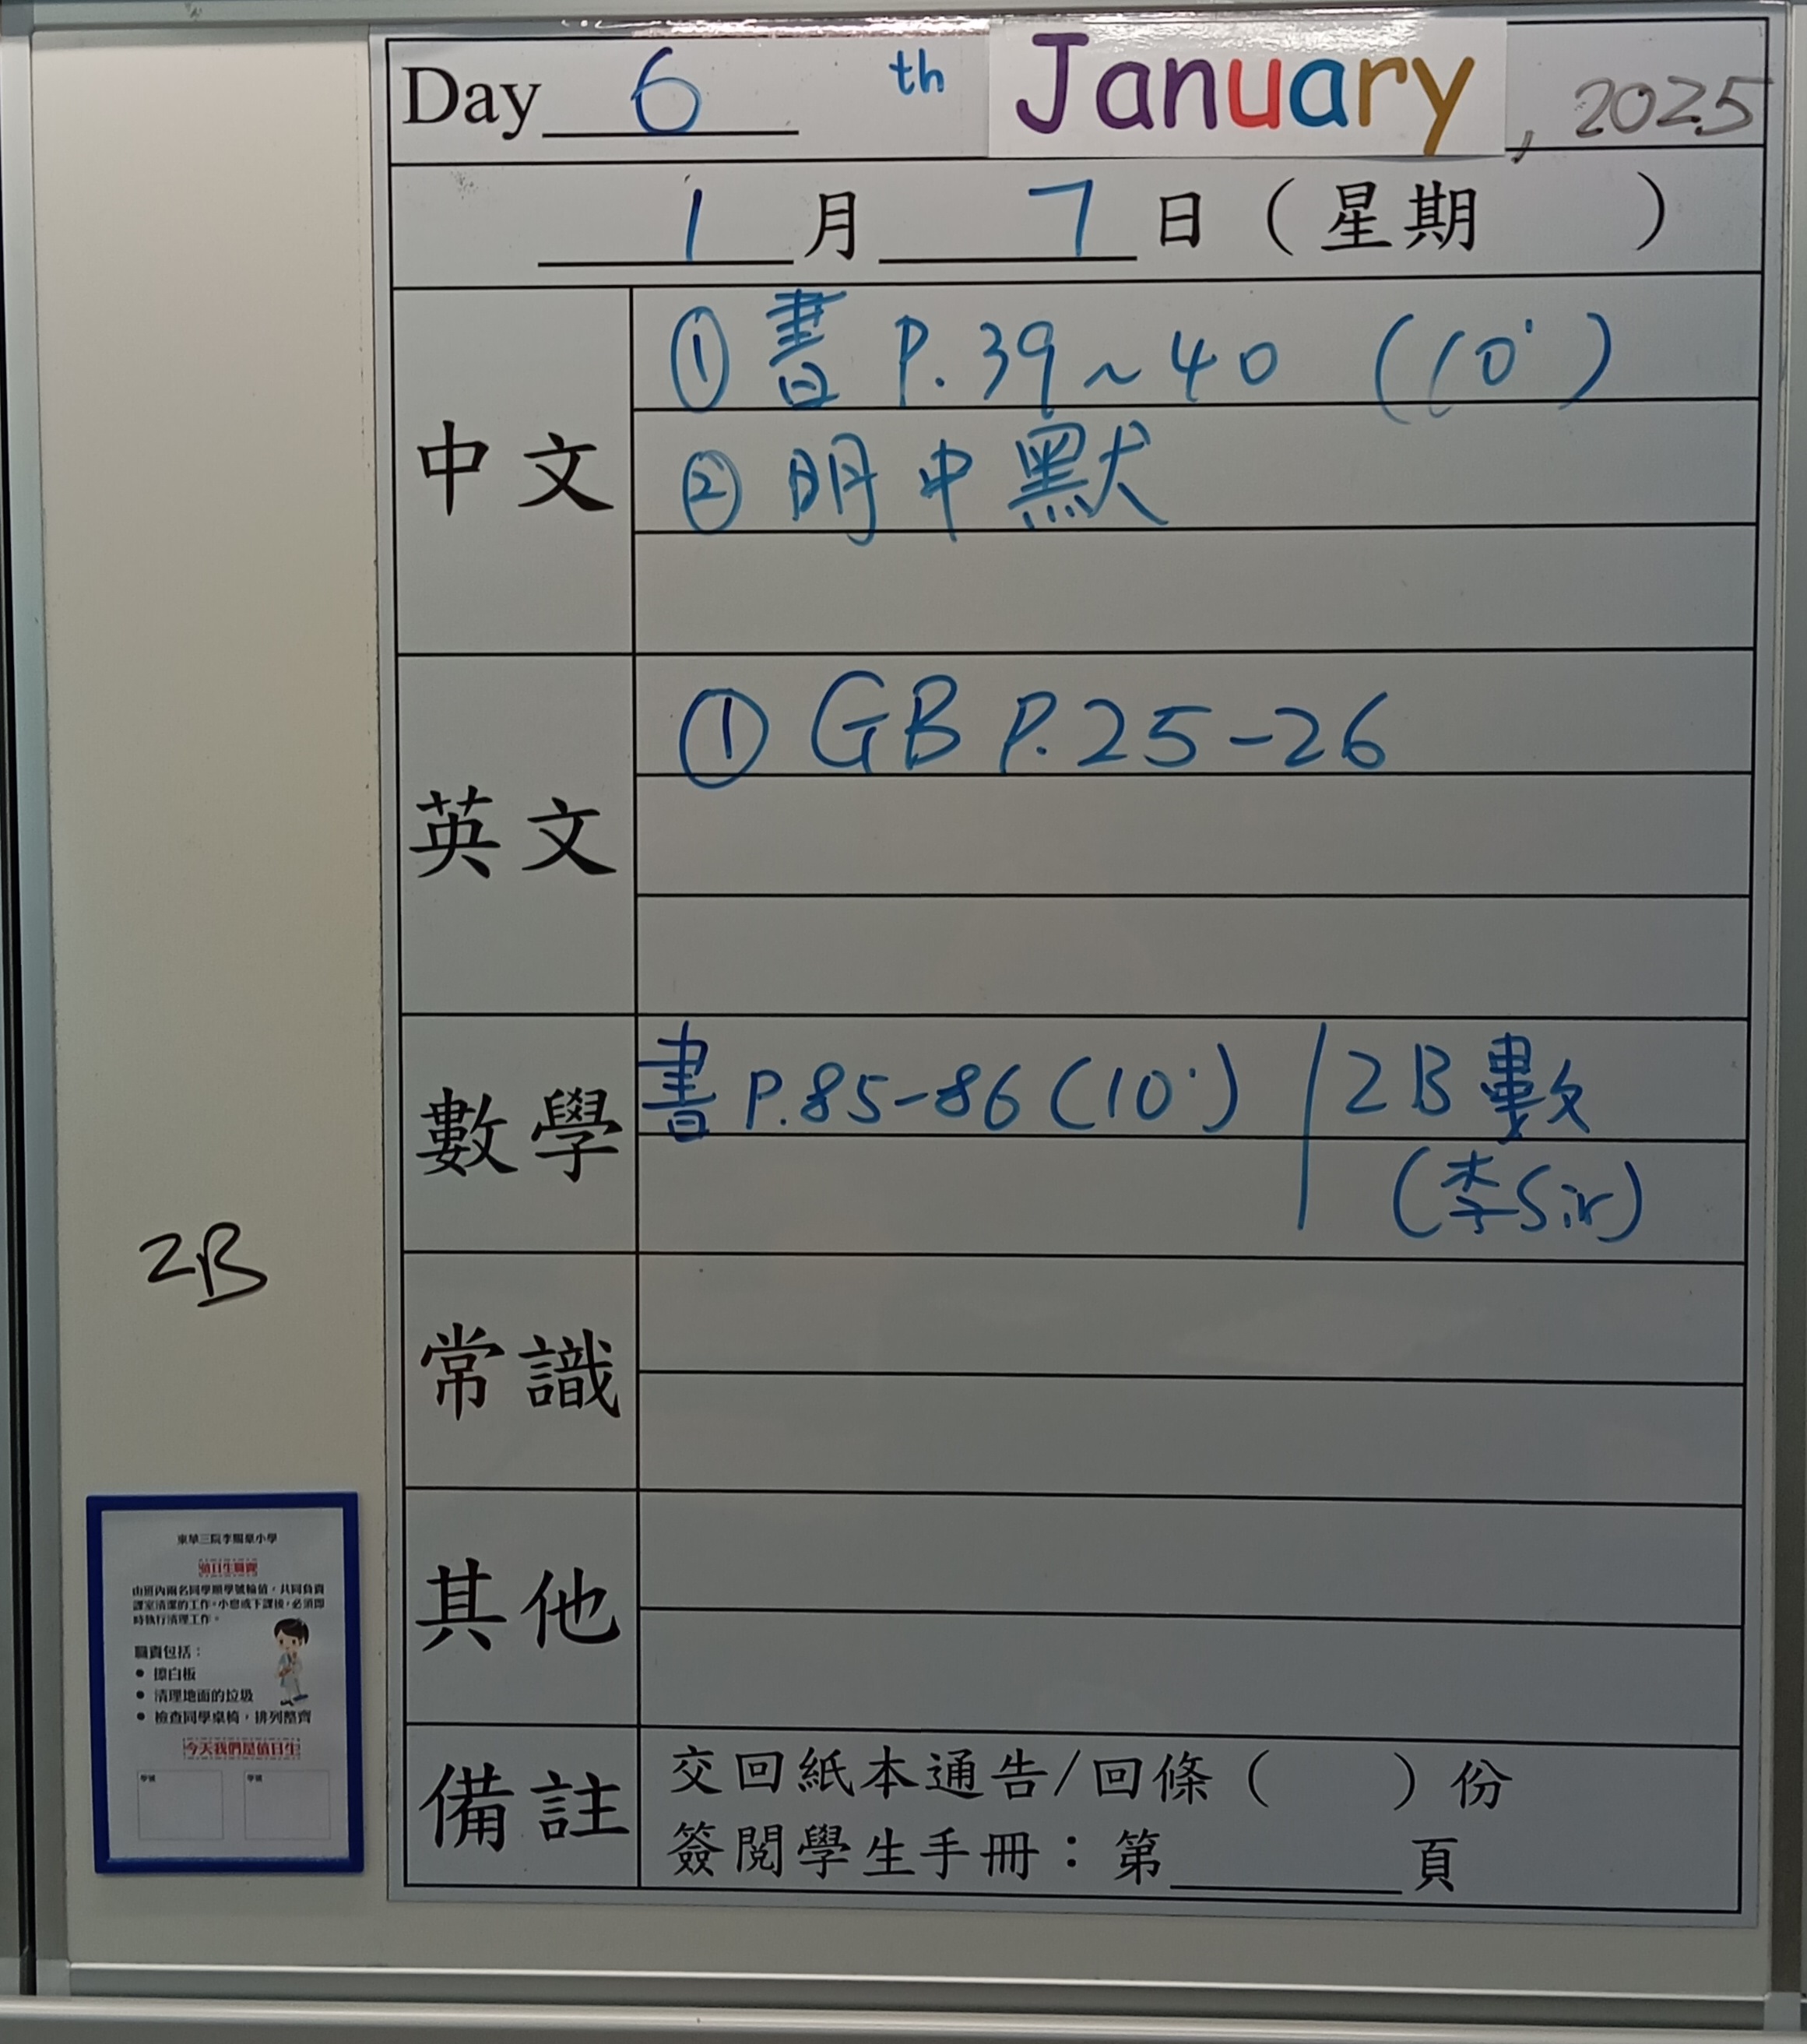 Day 6 th January, 2025
1 月 7 日 ( 星期 )
中文
① 書 P.39~40 (10')
② 明中默
英文
① GB P.25-26
數學
書 P.85-86 (10') 2B 數
(李Sir)
常識
其他
備註
交回紙本通告/回條 ( ) 份
簽閱學生手冊：第 頁
2B
值日生職責
由班內兩名同學順學號輪值，共同負責
課室清潔的工作。小息或下課後，必須即
時執行清理工作。
職責包括：
● 擦白板
● 清理地面的垃圾
● 檢查同學桌椅，排列整齊
今天我們是值日生
學號 學號